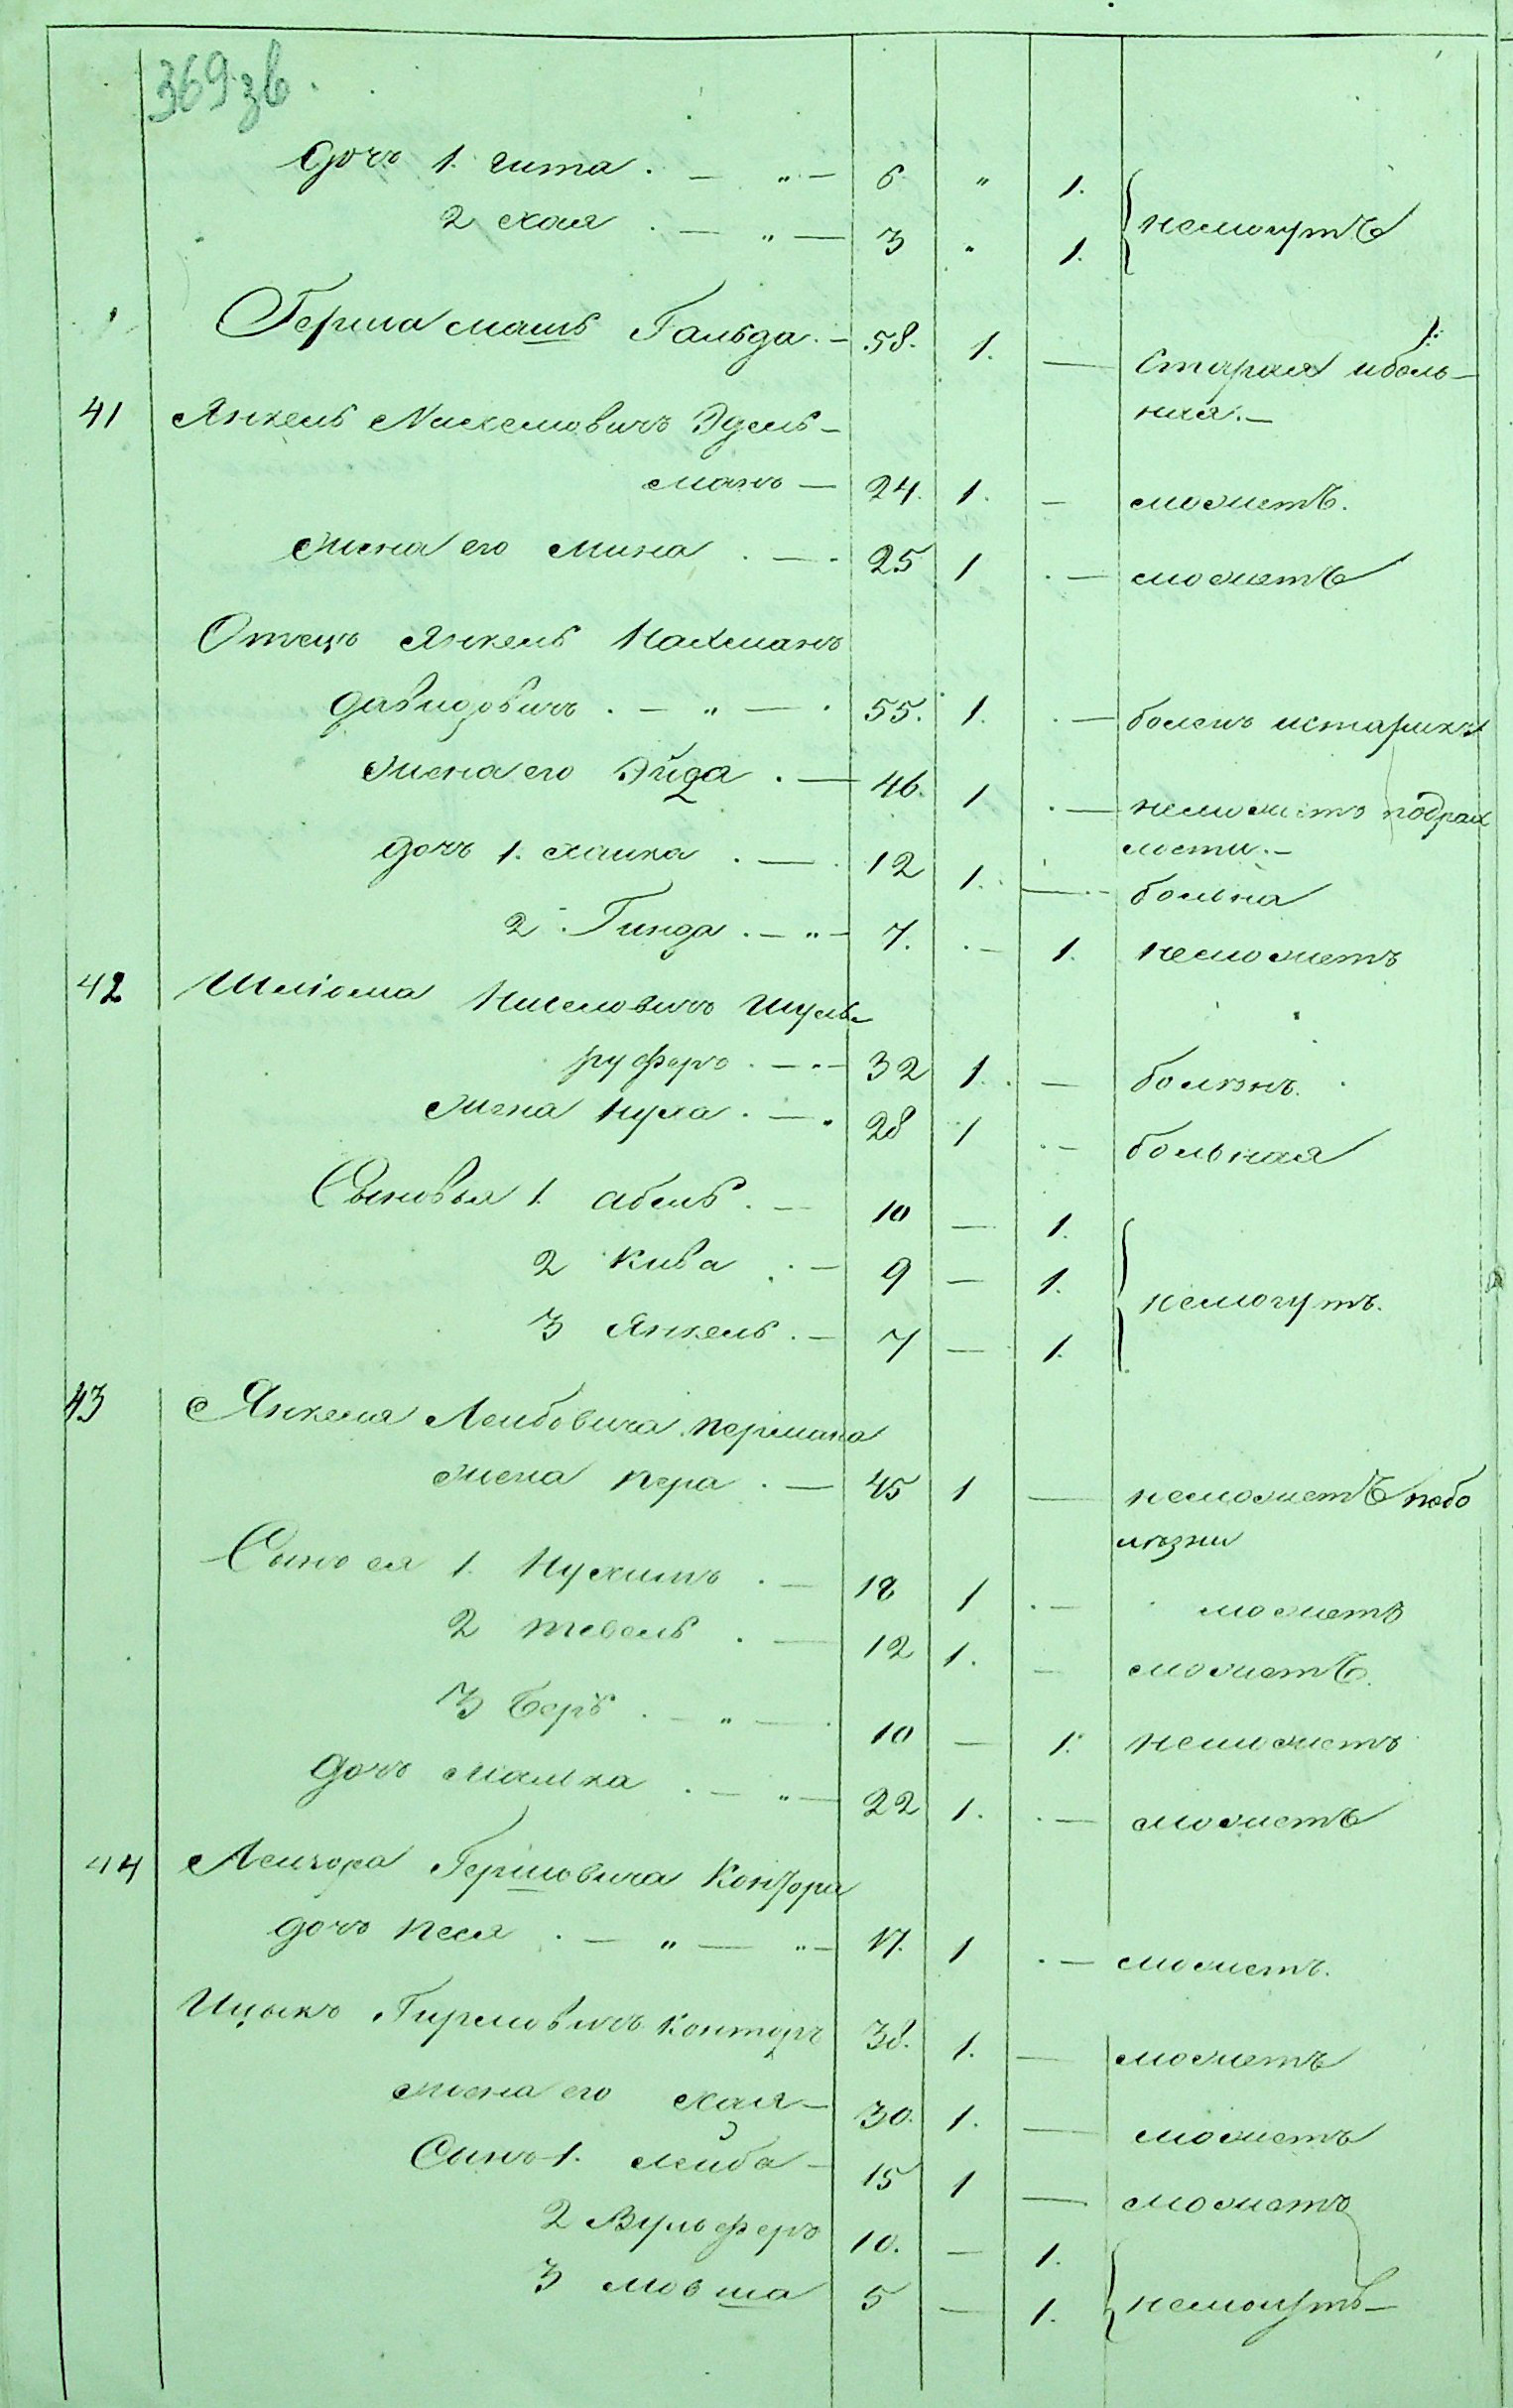 369 зв.
дочь 1. Гита . — „ — 6 „ 1.
2 Хая . — „ — 3 „ 1. немогутъ
Герша мать Гольда . — 58. 1. — Старая и боль-
ная. —
41 Янкель Михелновичъ Эдель-
манъ — 24. 1. — можетъ.
жена его Мина . — 25 1 . — можетъ
Отецъ Янкель Нахманъ
Давидовичъ . — „ — . 55. 1. . — боленъ истарикъ
жена его Эйда . — 46. 1 . — неможетъ подрях
лости. —
дочь 1. Ханка . — . 12 1. — больна
2. Гинда . — „ — 7. . — 1. неможетъ
42 Шліома Ниселовичъ Шуль
руферъ . — „ — 32 1. . — боленъ.
жена Нуха . — . 28 1 . — больная
Сыновья 1. Абель . — 10 — 1.
2 Кива . — 9 — 1. немогутъ.
3 Янкель . — 7 — 1.
43 Янкеля Лейбовича Пермана
жена Пера . — 45 1 — неможетъ побо
лѣзни
Сынъ ея 1. Нухимъ . — 18 1 . — можетъ
2 Тевель . — 12 1. — можетъ.
3 Беръ . — „ — . 10 — 1. неможетъ
дочь Малка . — „ — 22 1. . — можетъ
44 Лейзора Гершовича Контора
дочь Песя . — „ — „ — 17. 1 . — можетъ.
Ицыкъ Гиршовичъ Конторъ 38. 1. — можетъ
жена его Хая — 30. 1. — можетъ
Сынъ 1. Лейба — 15 1 — можетъ
2 Вульферъ 10. — 1.
3 Мовша 5 — 1. немогутъ —